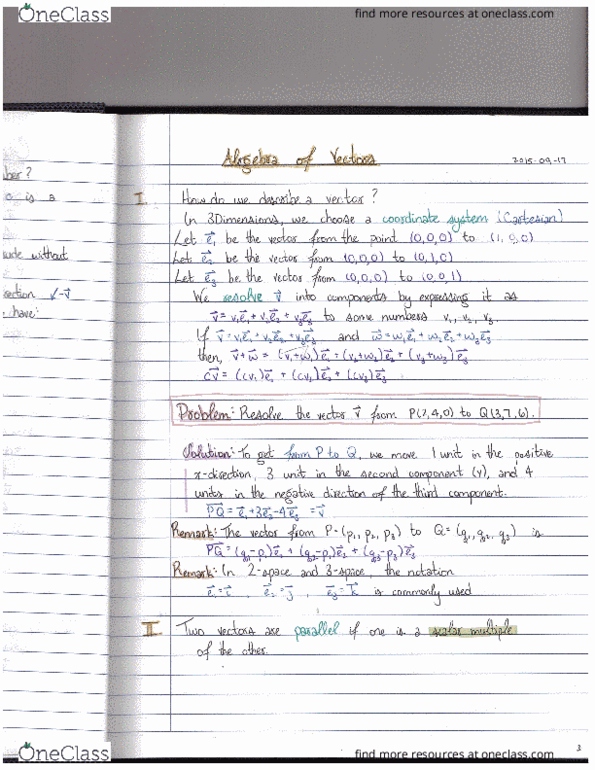 OneClass
find more resources at oneclass.com
Algebra of Vectors
2015-09-17
her ?
is a
ude without
-v⃗
have:
I. How do we describe a vector?
In 3Dimensions, we choose a coordinate system (Cartesian)
Let e⃗₁ be the vector from the point (0,0,0) to (1,0,0)
Let e⃗₂ be the vector from (0,0,0) to (0,1,0)
Let e⃗₃ be the vector from (0,0,0) to (0,0,1)
We resolve v⃗ into components by expressing it as
v⃗ = v₁e⃗₁ + v₂e⃗₂ + v₃e⃗₃ to some numbers v₁, v₂, v₃
If v⃗ = v₁e⃗₁ + v₂e⃗₂ + v₃e⃗₃ and w⃗ = w₁e⃗₁ + w₂e⃗₂ + w₃e⃗₃
then, v⃗ + w⃗ = (v₁+w₁)e⃗₁ + (v₂+w₂)e⃗₂ + (v₃+w₃)e⃗₃
cv⃗ = (cv₁)e⃗₁ + (cv₂)e⃗₂ + (cv₃)e⃗₃
Problem: Resolve the vector v⃗ from P(2,4,0) to Q(3,7,6).
Solution: To get from P to Q, we move 1 unit in the positive
x-direction, 3 unit in the second component (Y), and 4
units in the negative direction of the third component.
PQ⃗ = e⃗₁ + 3e⃗₂ - 4e⃗₃ = v⃗
Remark: The vector from P=(p₁, p₂, p₃) to Q=(q₁, q₂, q₃) is
PQ⃗ = (q₁-p₁)e⃗₁ + (q₂-p₂)e⃗₂ + (q₃-p₃)e⃗₃
Remark: In 2-space and 3-space, the notation
e⃗₁ = i⃗ , e⃗₂ = j⃗ , e⃗₃ = k⃗ is commonly used
II. Two vectors are parallel if one is a scalar multiple
of the other.
3
OneClass
find more resources at oneclass.com